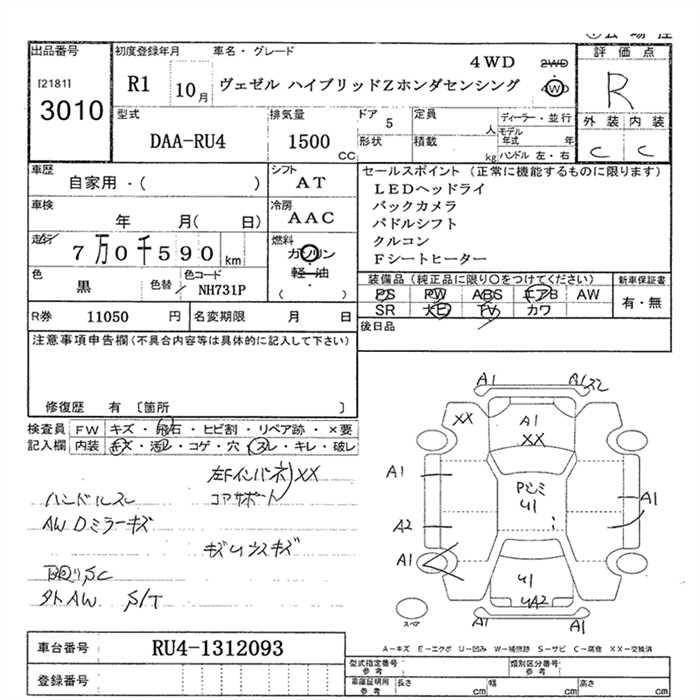 出品番号
[2181]
3010
初度登録年月
R1 10月
車名・グレード
4WD
ヴェゼル ハイブリッドZホンダセンシング
2WD
4WD
評価点
R
外装 内装
C C
型式
DAA-RU4
排気量
1500 CC
ドア 5
形状
定員 人
積載 kg
ディーラー・並行
モデル年式 年
ハンドル 左・右
車歴
自家用・( )
シフト
AT
車検
年 月( 日)
冷房
AAC
走行
7万0千590 km
燃料
ガソリン
軽油
( )
色
黒
色替
色コード
NH731P
R券 11050 円
名変期限 月 日
セールスポイント (正常に機能するものに限ります)
LEDヘッドライ
バックカメラ
パドルシフト
クルコン
Fシートヒーター
装備品(純正品に限り○をつけてください)
PS PW ABS エアB AW
SR ナビ TV カワ
新車保証書
有・無
後日品
注意事項申告欄(不具合内容等は具体的に記入して下さい)
修復歴 有 〔箇所 〕
検査員記入欄
FW キズ・飛石・ヒビ割・リペア跡・×要
内装 キズ・汚レ・コゲ・穴・スレ・キレ・破レ
左Fインパネ XX
コアサポート
ハンドルスレ
AW Dミラーキズ
下回りSC
タトAW S/T
A1
A1
XX
A1
XX
A1
A1
A2
A1
U1
U1
UA2
A1
A1
スペア
車台番号 RU4-1312093
登録番号
A-キズ E-エクボ U-凹み W-補修跡 S-サビ C-腐食 XX-交換済
型式指定番号
参考
類別区分番号
参考
車庫証明用
参考
長さ cm
幅 cm
高さ cm